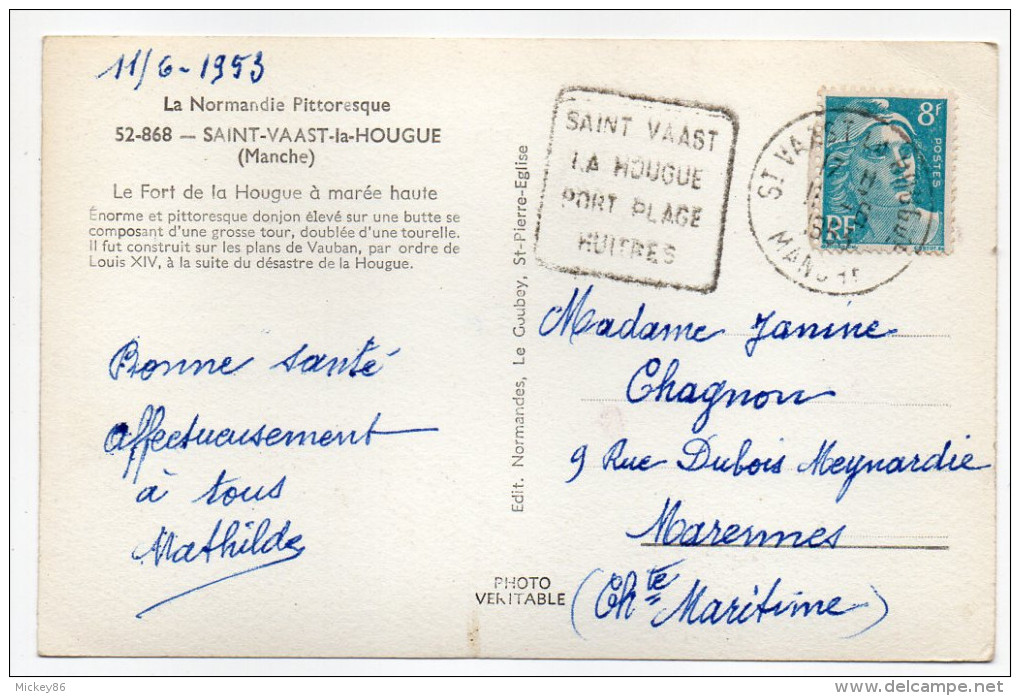 11/6-1953
La Normandie Pittoresque
52-868 — SAINT-VAAST-la-HOUGUE
(Manche)
Le Fort de la Hougue à marée haute
Énorme et pittoresque donjon élevé sur une butte se
composant d'une grosse tour, doublée d'une tourelle.
Il fut construit sur les plans de Vauban, par ordre de
Louis XIV, à la suite du désastre de la Hougue.
Bonne santé
affectueusement
à tous
Mathilde
Edit. Normandes, Le Goubey, St-Pierre-Eglise
PHOTO
VERITABLE
SAINT VAAST
LA HOUGUE
PORT PLAGE
HUITRES
8F
POSTES
RF
ST VAAST LA HOUGUE
MANCHE
Madame Janine
Chagnon
9 Rue Dubois Meynardie
Marennes
(Chte Maritime)
Mickey86
www.delcampe.net